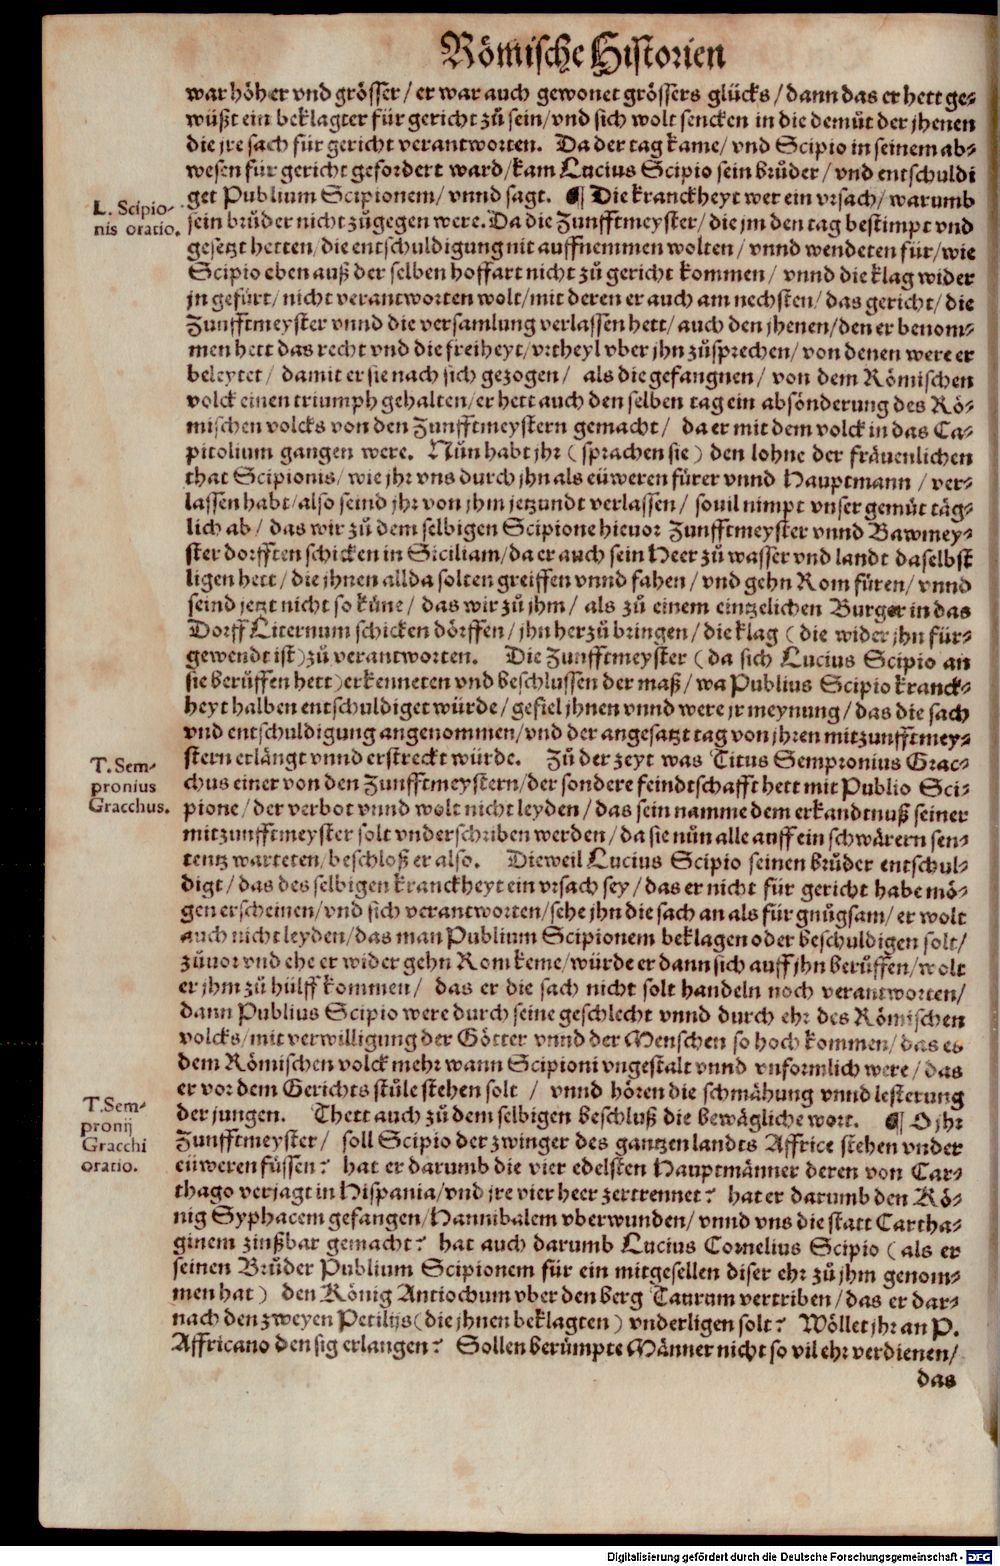 Römische Historien
war höher vnd grösser / er war auch gewonet grössers glücks / dann das er hett ge-
wüßt ein beklagter für gericht zů sein / vnd sich wolt sencken in die demůt der jhenen
die jre sach für gericht verantworten. Da der tag kame / vnd Scipio in seinem ab-
wesen für gericht gefordert ward / kam Lucius Scipio sein brůder / vnd entschuldi
get Publium Scipionem / vnnd sagt. ¶ Die kranckheyt wer ein vrsach / warumb
L. Scipio-
nis oratio.
sein brůder nicht zůgegen were. Da die Zunfftmeyster / die jm den tag bestimpt vnd
gesetzt hetten / die entschuldigung nit auffnemmen wolten / vnnd wendeten für / wie
Scipio eben auß der selben hoffart nicht zů gericht kommen / vnnd die klag wider
jn gefürt / nicht verantworten wolt / mit deren er auch am nechsten / das gericht / die
Zunfftmeyster vnnd die versamlung verlassen hett / auch den jhenen / den er benom-
men hett das recht vnd die freiheyt / vrtheyl vber jhn zůsprechen / von denen were er
beleytet / damit er sie nach sich gezogen / als die gefangnen / von dem Römischen
volck einen triumph gehalten / er hett auch den selben tag ein absönderung des Rö-
mischen volcks von den Zunfftmeystern gemacht / da er mit dem volck in das Ca-
pitolium gangen were. Nůn habt jhr ( sprachen sie ) den lohne der fräuenlichen
that Scipionis / wie jhr vns durch jhn als eüweren fürer vnnd Hauptmann / ver-
lassen habt / also seind jhr von jhm jetzundt verlassen / souil nimpt vnser gemůt täg-
lich ab / das wir zů dem selbigen Scipione hieuor Zunfftmeyster vnnd Bawmey-
ster dorfften schicken in Siciliam / da er auch sein Heer zů wasser vnd landt daselbst
ligen hett / die jhnen allda solten greiffen vnnd fahen / vnd gehn Rom füren / vnnd
seind jetzt nicht so küne / das wir zů jhm / als zů einem eintzelichen Burger in das
Dorff Liternum schicken dörffen / jhn herzů bringen / die klag ( die wider jhn für-
gewendt ist ) zů verantworten. Die Zunfftmeyster ( da sich Lucius Scipio an
sie berůffen hett ) erkenneten vnd beschlussen der maß / wa Publius Scipio kranck-
heyt halben entschuldiget würde / gefiel jhnen vnnd were jr meynung / das die sach
vnd entschuldigung angenommen / vnd der angesatzt tag von jhren mitzunfftmey-
stern erlängt vnnd erstreckt würde. Zů der zeyt was Titus Sempronius Grac-
T. Sem-
pronius
Gracchus.
chus einer von den Zunfftmeystern / der sondere feindtschafft hett mit Publio Sci-
pione / der verbot vnnd wolt nicht leyden / das sein namme dem erkandtnuß seiner
mitzunfftmeyster solt vnderschriben werden / da sie nůn alle auff ein schwärern sen-
tentz warteten / beschloß er also. Dieweil Lucius Scipio seinen brůder entschul-
digt / das des selbigen kranckheyt ein vrsach sey / das er nicht für gericht habe mö-
gen erscheinen / vnd sich verantworten / sehe jhn die sach an als für gnůgsam / er wolt
auch nicht leyden / das man Publium Scipionem beklagen oder beschuldigen solt /
zůuor vnd ehe er wider gehn Rom keme / würde er dann sich auff jhn berůffen / wolt
er jhm zů hülff kommen / das er die sach nicht solt handeln noch verantworten /
dann Publius Scipio were durch seine geschlecht vnnd durch ehr des Römischen
volcks / mit verwilligung der Götter vnnd der Menschen so hoch kommen / das es
dem Römischen volck mehr wann Scipioni vngestalt vnnd vnformlich were / das
er vor dem Gerichts stůle stehen solt / vnnd hören die schmähung vnnd lesterung
der jungen. Thett auch zů dem selbigen beschluß die bewägliche wort. ¶ O jhr
T. Sem-
pronij
Gracchi
oratio.
Zunfftmeyster / soll Scipio der zwinger des gantzen landts Affrice stehen vnder
eüweren füssen? hat er darumb die vier edelsten Hauptmänner deren von Car-
thago verjagt in Hispania / vnd jre vier heer zertrennet? hat er darumb den Kö-
nig Syphacem gefangen / Hannibalem vberwunden / vnnd vns die statt Cartha-
ginem zinßbar gemacht? hat auch darumb Lucius Cornelius Scipio ( als er
seinen Brůder Publium Scipionem für ein mitgesellen diser ehr zů jhm genom-
men hat ) den König Antiochum vber den berg Taurum vertriben / das er dar-
nach den zweyen Petilijs ( die jhnen beklagten ) vnderligen solt? Wöllet jhr an P.
Affricano den sig erlangen? Sollen berümpte Männer nicht so vil ehr verdienen /
das
Digitalisierung gefördert durch die Deutsche Forschungsgemeinschaft - DFG